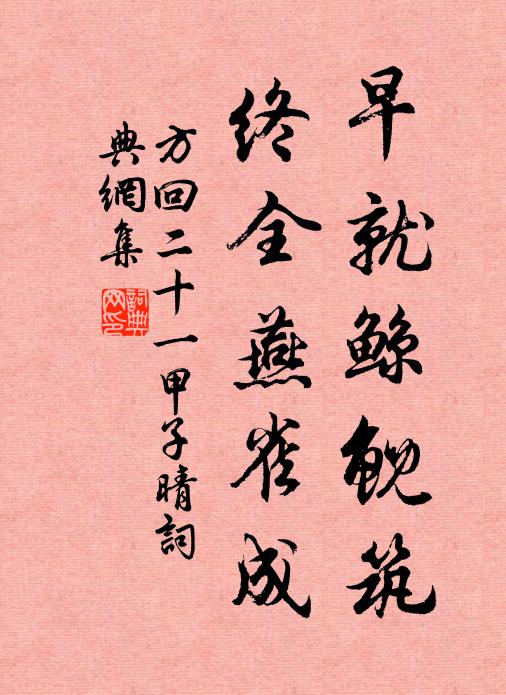 早就鲸鲵筑
终全燕雀成
方回二十一甲子晴词
典網集
詞典
网印